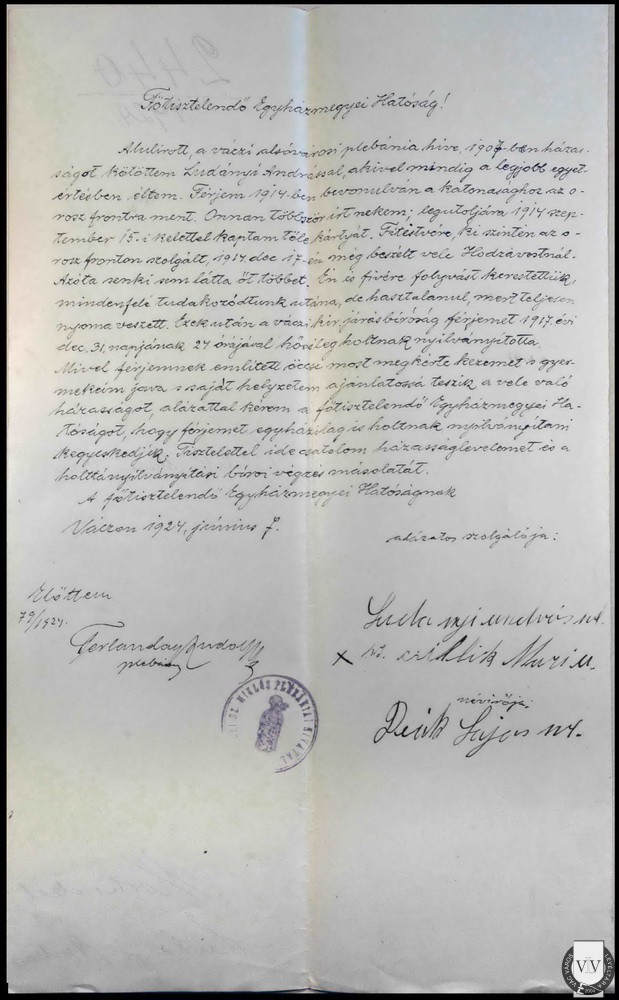 2440
Főtisztelendő Egyházmegyei Hatóság!
Alulirott, a váczi alsóvárosi plebánia hive, 1907-ben háza-
ságot kötöttem Ludányi Andrással, akivel mindig a legjobb egyet-
értésben éltem. Férjem 1914-ben bevonulván a katonasághoz az o-
rosz frontra ment. Onnan többször irt nekem; legutoljára 1914 szep-
tember 15.-i kelettel kaptam tőle kártyát. Fitestvére, ki szintén az o-
rosz fronton szolgált, 1914 dec 17-én még beszélt vele Hodzávostnál.
Azóta senki sem látta őt többet. Én és fivére folyvást kerestettük,
mindenfelé tudakozódtunk utána, de hasztalanul, mert teljesen
nyoma veszett. Ezek után a váczi kir. járásbiróság férjemet 1917. évi
dec. 31. napjának 24 órájával hősileg holtnak nyilvánitotta.
Mivel férjemnek emlitett öccse most megkérte kezemet s gyer-
mekeim java s saját helyzetem ajánlatossá teszik a vele való
házasságot, alázattal kérem a főtisztelendő Egyházmegyei Ha-
tóságot, hogy férjemet egyházilag is holtnak nyilvánitani
kegyeskedjék. Tisztelettel ide csatolom házasságlevelemet és a
holttányilvánitási birói végzés másolatát.
A főtisztelendő Egyházmegyei Hatóságnak
Váczon 1924, junius 7.
alázatos szolgálója:
Előttem
79/1924.
Ludanyi andrás né.
Ferlanday Rudolf
plebános
x sz. cziklik Maria
névirója:
Deák Lajos né.
SZ. MIKLÓS PLEBÁNIAI HIVATAL
VÁC VÁROS LEVÉLTÁRA
VVL